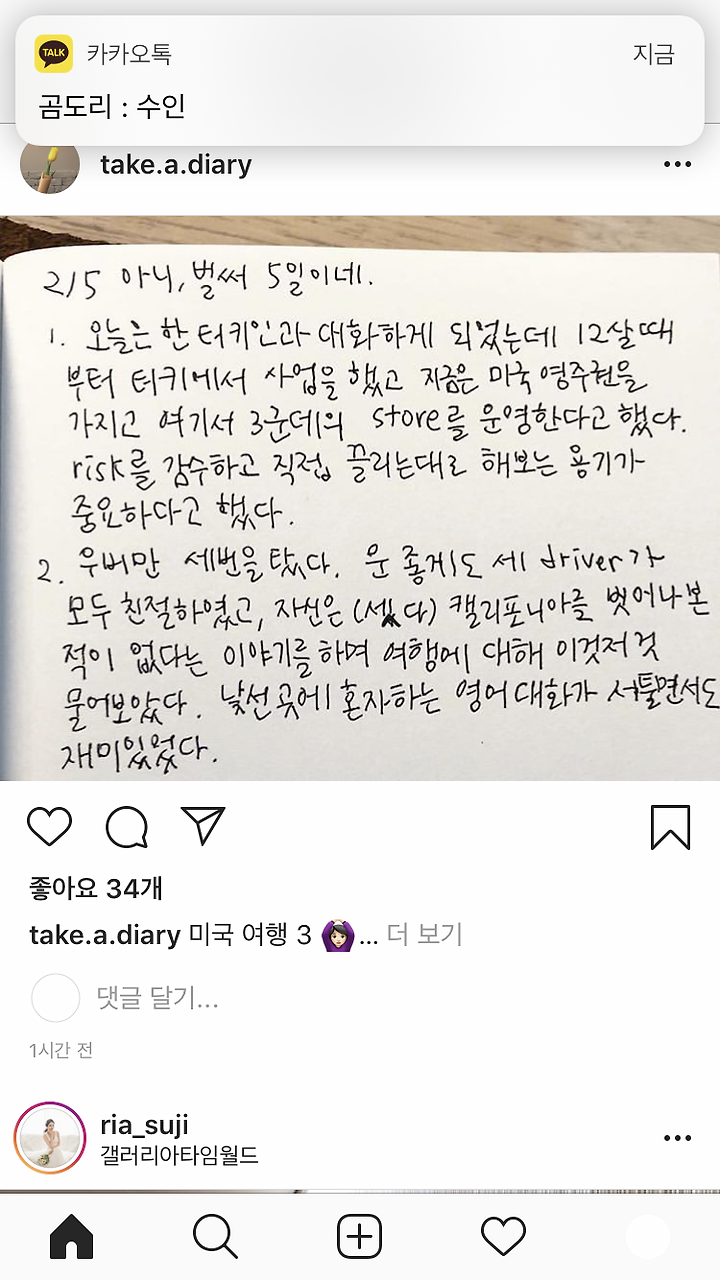 TALK 카카오톡 지금
곰도리 : 수인
take.a.diary
2/5 아니, 벌써 5일이네.
1. 오늘은 한 터키인과 대화하게 되었는데 12살때
부터 터키에서 사업을 했고 지금은 미국 영주권을
가지고 여기서 3군데의 store를 운영한다고 했다.
risk를 감수하고 직접 끌리는대로 해보는 용기가
중요하다고 했다.
2. 우버만 세번을 탔다. 운 좋게도 세 driver가
모두 친절하였고, 자신은 (셌다) 캘리포니아를 벗어나본
적이 없다는 이야기를 하며 여행에 대해 이것저것
물어보았다. 낯선 곳에 혼자하는 영어 대화가 서툴면서도
재미있었다.
좋아요 34개
take.a.diary 미국 여행 3 🙆🏻‍♀️... 더 보기
댓글 달기...
1시간 전
ria_suji
갤러리아타임월드